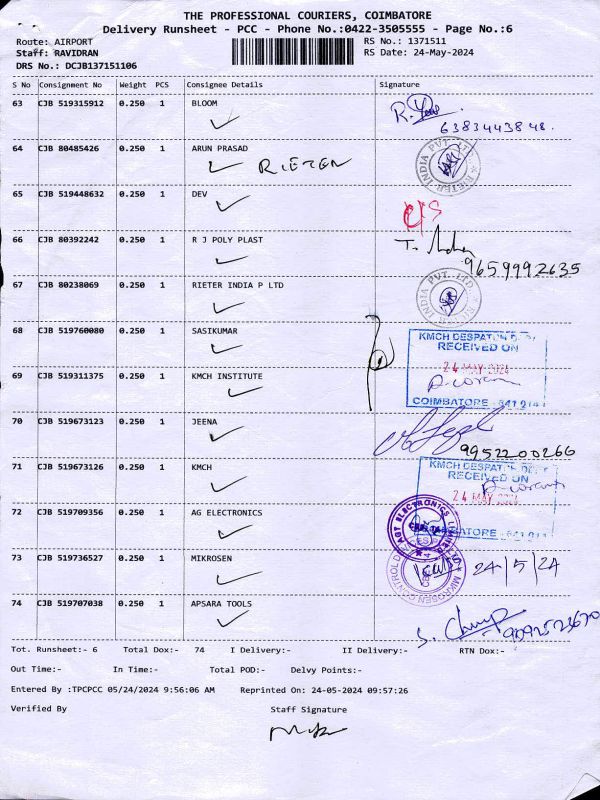 THE PROFESSIONAL COURIERS, COIMBATORE
Delivery Runsheet - PCC - Phone No.:0422-3505555 - Page No.:6
Route: AIRPORT RS No.: 1371511
Staff: RAVIDRAN RS Date: 24-May-2024
DRS No.: DCJB137151106
S No Consignment No Weight PCS Consignee Details Signature
63 CJB 519315912 0.250 1 BLOOM
6383443848.
64 CJB 80485426 0.250 1 ARUN PRASAD
RIETER
RIETER INDIA PVT. LTD
65 CJB 519448632 0.250 1 DEV
C/S
66 CJB 80392242 0.250 1 R J POLY PLAST
9659992635
67 CJB 80238069 0.250 1 RIETER INDIA P LTD
68 CJB 519760080 0.250 1 SASIKUMAR
KMCH DESPATCH DEPT
RECEIVED ON
24 MAY 2024
COIMBATORE - 641 014
69 CJB 519311375 0.250 1 KMCH INSTITUTE
70 CJB 519673123 0.250 1 JEENA
9952200266
71 CJB 519673126 0.250 1 KMCH
KMCH DESPATCH DEPT
RECEIVED ON
24 MAY 2024
72 CJB 519709356 0.250 1 AG ELECTRONICS
73 CJB 519736527 0.250 1 MIKROSEN
24/5/24
74 CJB 519707038 0.250 1 APSARA TOOLS
Tot. Runsheet:- 6 Total Dox:- 74 I Delivery:- II Delivery:- RTN Dox:-
Out Time:- In Time:- Total POD:- Delvy Points:-
Entered By :TPCPCC 05/24/2024 9:56:06 AM Reprinted On: 24-05-2024 09:57:26
Verified By Staff Signature